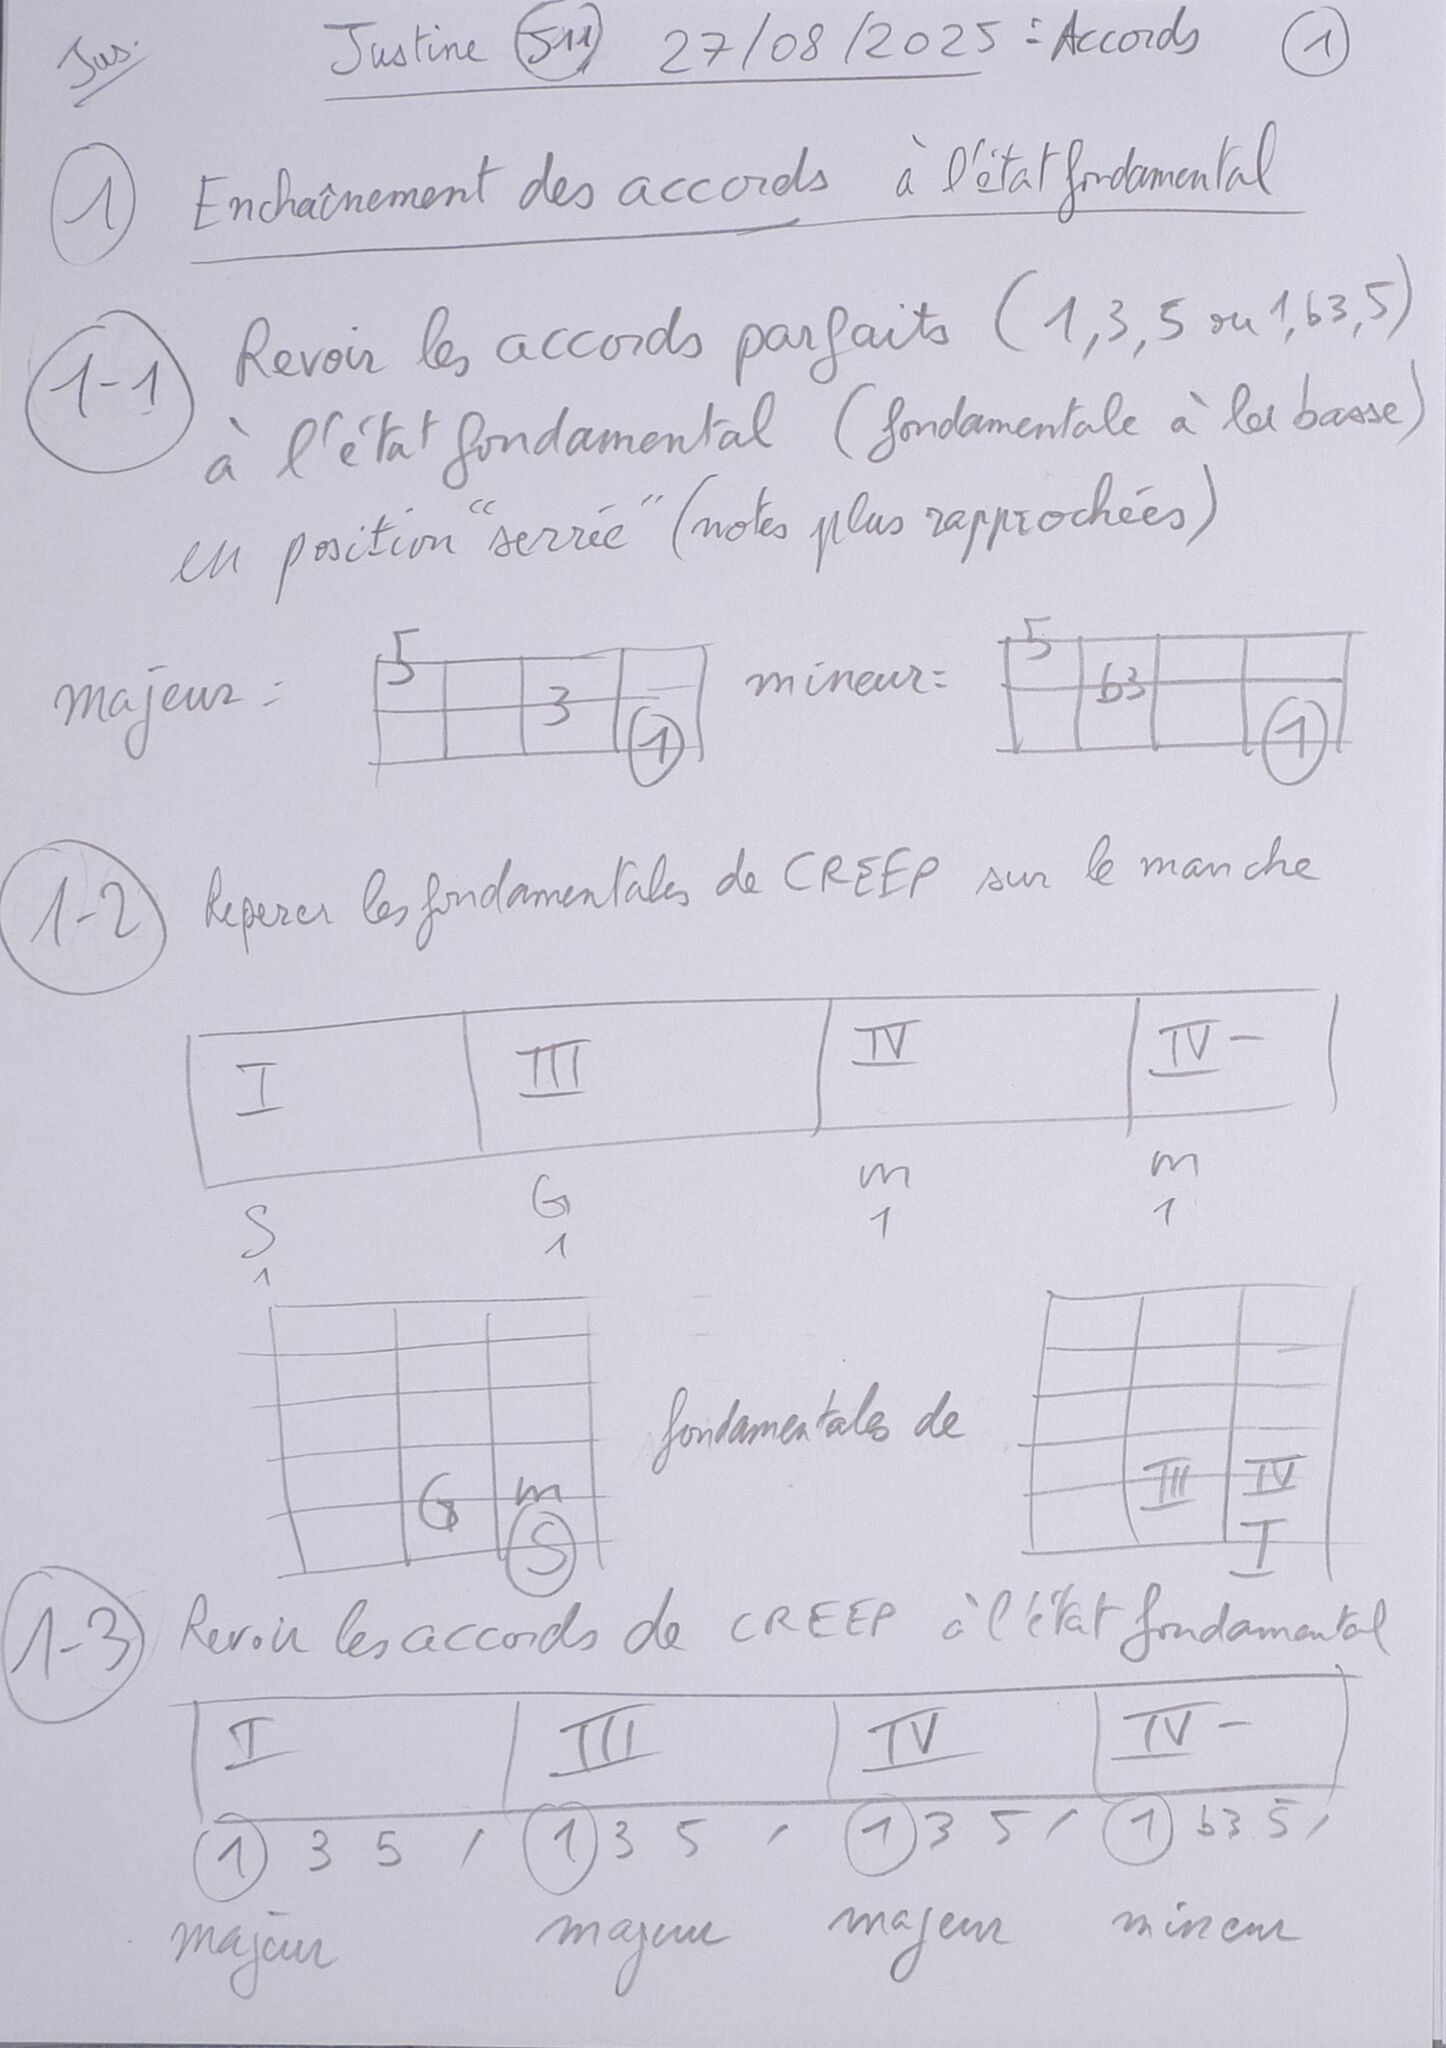 Jus.
Justine S11 27/08/2025 : Accords 1
1 Enchaînement des accords à l'état fondamental
1-1 Revoir les accords parfaits (1,3,5 ou 1,b3,5)
à l'état fondamental (fondamentale à la basse)
en position "serrée" (notes plus rapprochées)
majeur : 5 3 1 mineur : 5 b3 1
1-2 Reperer les fondamentales de CREEP sur le manche
I III IV IV-
S G m m
1 1 1 1
G m S fondamentales de III IV I
1-3 Revoir les accords de CREEP à l'état fondamental
I III IV IV-
1 3 5 , 1 3 5 , 1 3 5 , 1 b3 5 ,
majeur majeur majeur mineur